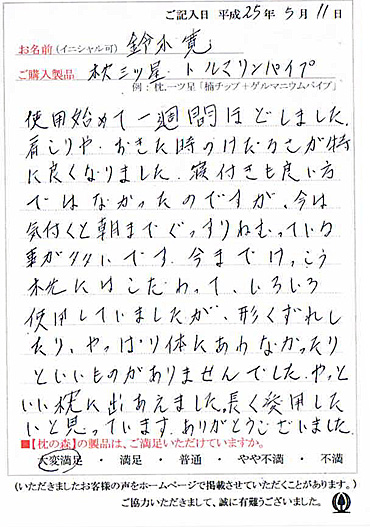 ご記入日 平成25年 5月 11日
お名前(イニシャル可) 鈴木 寛
ご購入製品 枕三ツ星・トルマリンパイプ
例:枕,一ツ星「楠チップ+ゲルマニウムパイプ」
使用始めて一週間ほどしました.
肩こりや.おきた時のけだるさが特
に良くなりました.寝付きも良い方
ではなかったのですが、今は
気付くと朝までぐっすりねむっている
事が多いです.今までけっこう
枕にはこだわって、いろいろ
使用していましたが、形くずれし
たり、やっぱり体にあわなかったり
といいものがありませんでした.やっと
いい枕に出あえました.長く愛用した
いと見っています.ありがとうございました.
■【枕の森】の製品は、ご満足いただけていますか。
大変満足 ・ 満足 ・ 普通 ・ やや不満 ・ 不満
(いただきましたお客様の声をホームページで掲載させていただくことがあります。)
ご協力いただきまして、誠に有難うございました。